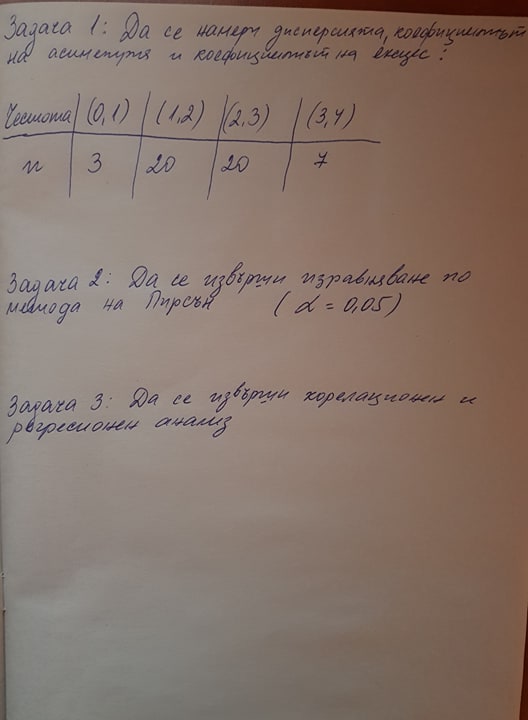 Задача 1: Да се намери дисперсията, коефициентът
на асиметрия и коефициентът на ексцес?
Честота (0,1) (1,2) (2,3) (3,4)
n 3 20 20 7
Задача 2: Да се извърши изравняване по
метода на Пирсън (α = 0,05)
Задача 3: Да се извърши корелационен и
регресионен анализ